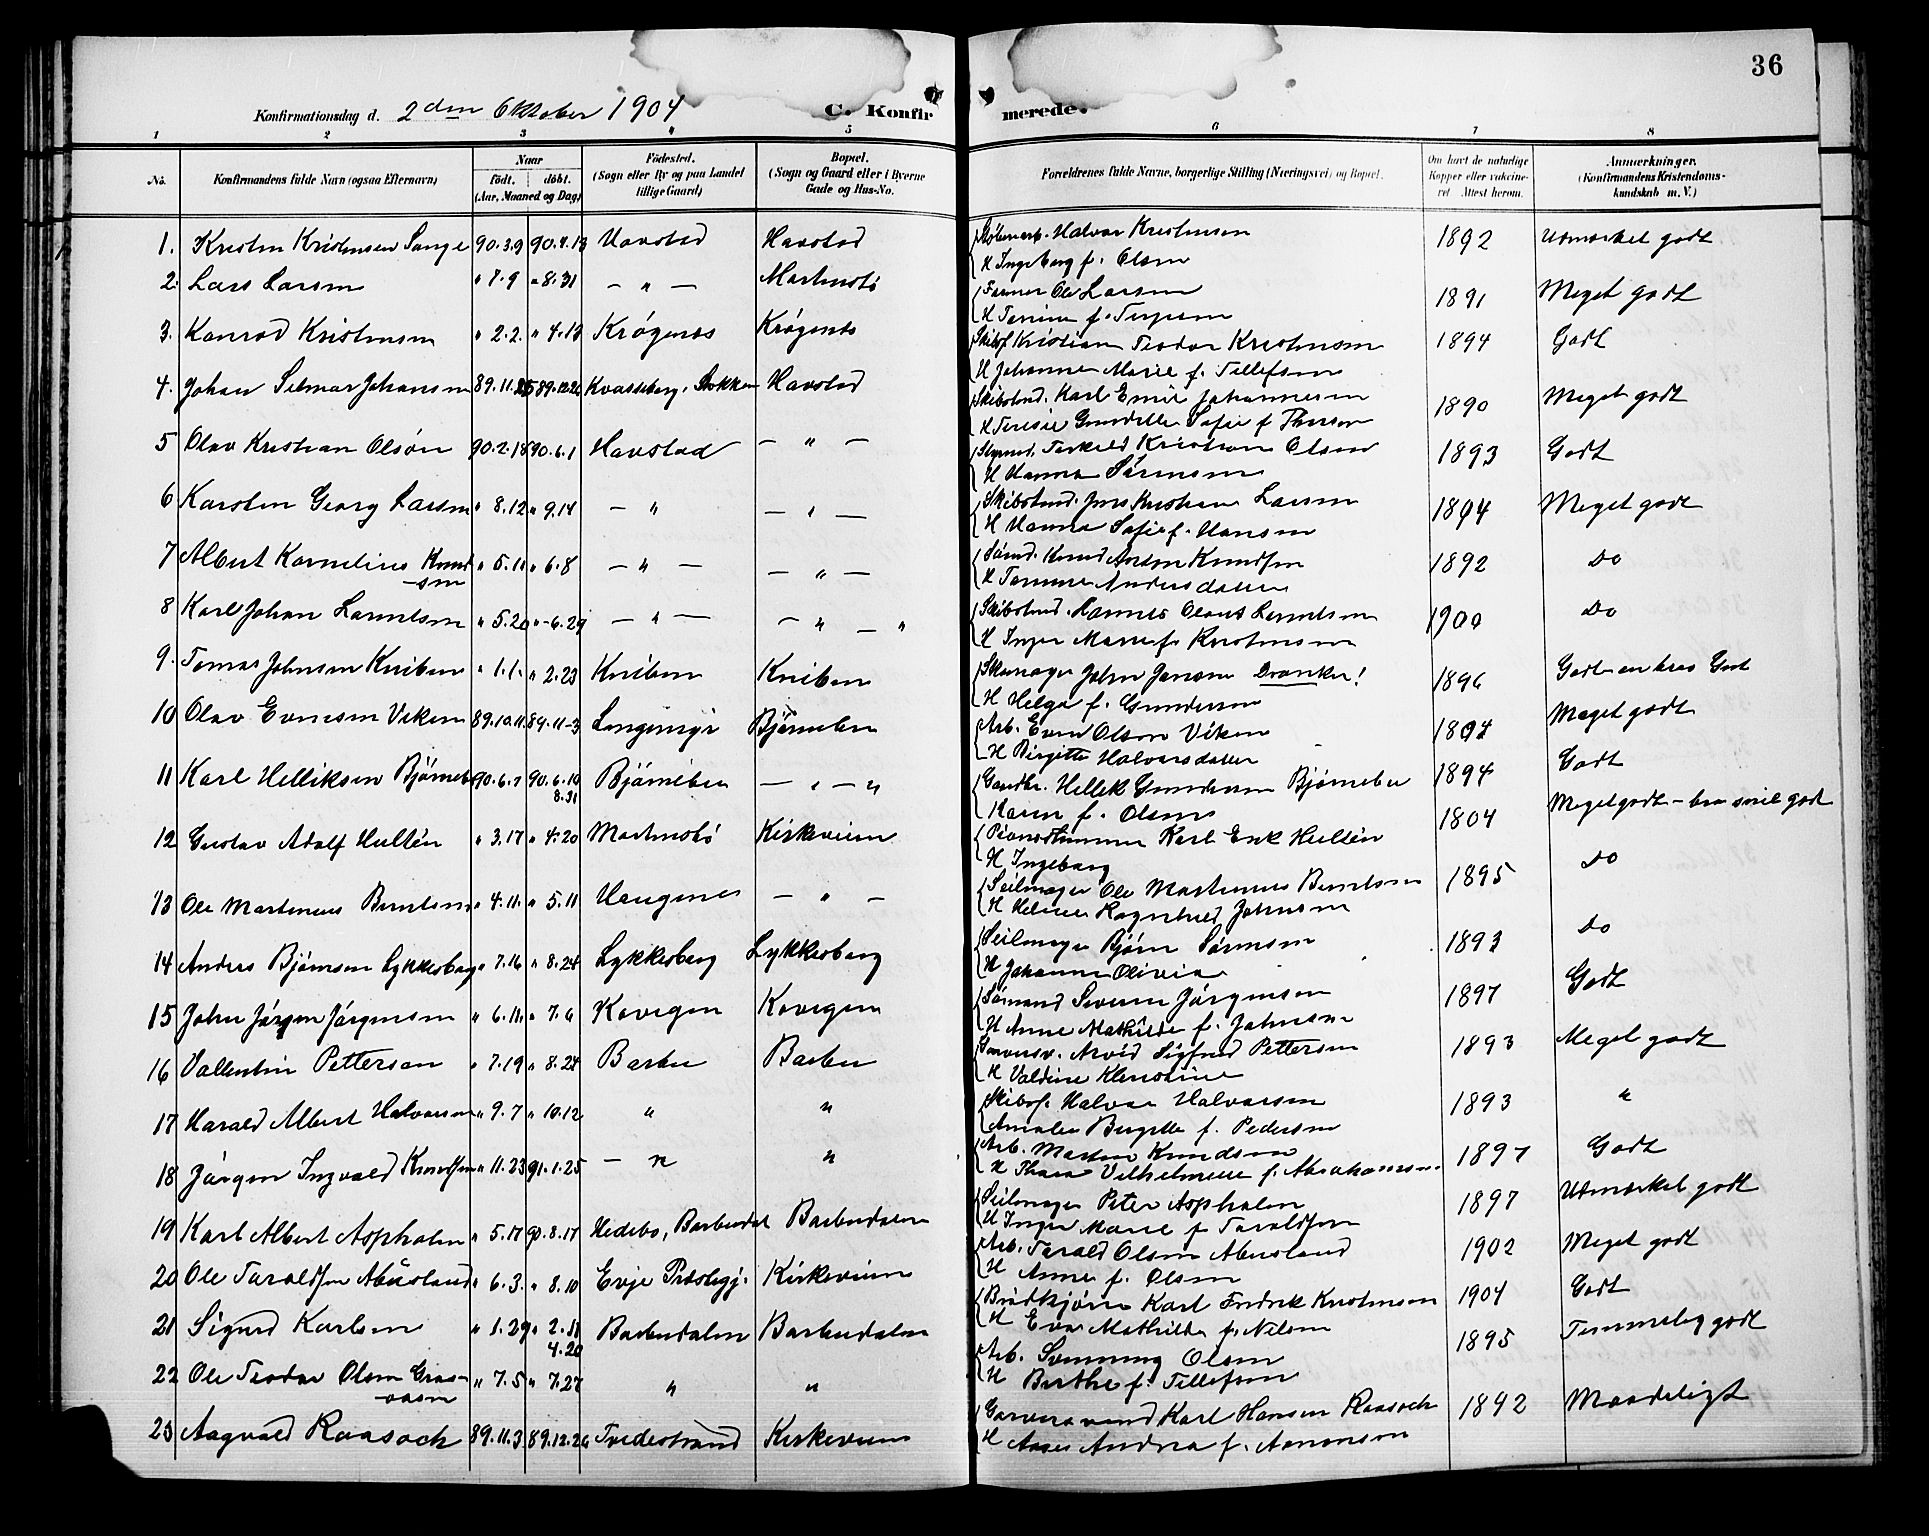 36
Konfirmationsdag d. 2den Oktober 1904
C. Konfir merede.
1 2 3 4 5 6 7 8
No. Konfirmandens fulde Navn (ogsaa Efternavn) Naar født. døbt. (Aar, Maaned og Dag) Fødested. (Sogn eller By og paa Landet tillige Gaard) Bopæl. (Sogn og Gaard eller i Byerne Gade og Hus-No. Forældrenes fulde Navne, borgerlige Stilling (Næringsvei) og Bopæl. Om havt de naturlige Kopper eller vakcineret Attest herom. Anmærkninger. (Konfirmandens Kristendomskundskab m. V.)
1. Kristen Kristensen Lange 90.3.9 90.4.13 Havstad Havstad Halvor Kristensen 1892 Udmærket godt
H Ingeborg f. Olsen
2. Lars Larsen " 7.9 " 8.31 — " — Martensbö Farmer Ole Larsen 1891 Meget godt
H Terine f. Terjesen
3. Konrad Kristensen " 2.2. " 4.13 Krögenes Krögenes Skibsf. Kristian Teodor Kristensen 1894 Godt
H Johanne Marie f. Tellefsen
4. Johan Selmar Johansen 89.11.25 89.12.26 Kvasseberg, Stokken Havstad Skibstmd. Karl Emil Johannesen 1890 Meget godt
H Teresie Gundelle Sofie f
5 Olav Kristian Olsøn 90.2.18 90.6.1 Havstad — " — Styrmd. Terkild Kristian Olsen 1893 Godt
H Hanna Sörensen
6 Karsten Georg Larsen " 8.12 " 9.14 — " — " — Skibstmd. Jens Kristian Larsen 1894 Meget godt
H Hanna Sofie f. Hansen
7 Albert Kornelius Knudsen " 5.11 " 6.8 — " — — " — Sömd. Knud Anton Knudsen 1892 Do
H Tomine Andersdatter
8 Karl Johan Larentsen " 5.20 " 6.29 — " — — " — " Skibstmd. Hannes Olaus Larentsen 1900 Do
H Inger Marie f. Kristensen
9. Tomas Johnsen Kniben " 1.1. " 2.23 Kniben Kniben Skomager John Jensen Dranker! 1896 Godt
H Helga f. Gundersen
10 Olav Evensen Viken 89.10.11 89.11.3 Longemyr Bjørneboe Arb. Even Olson Viken 1894 Meget godt
H Birgitte Halvorsdatter
11 Karl Helliksen Bjørnebo 90.6.7 90.6.10 8.31 Bjørneboe — " — " Gaardbr. Hellek Gundersen Bjørneboe 1894 Godt
Karen f. Olsen
12 Gustav Adolf Hultén " 3.17 " 4.20 Martensbö Kirkeveien Karl Erik Hultén 1804 Meget godt
H Ingeborg
13 Ole Martinius Berntsen " 4.11. " 5.11 Haugenes — " — Seilmager Ole Martinius Berntsen 1895 Do
H Helene Ragnhild Johnsen
14 Anders Bjørnsen Lykkesborg " 7.16 " 8.24 Lykkesborg Lykkesborg Seilmager Bjørn Sörensen 1893 Do
H Johanne Olivia
15 John Jörgen Jörgensen " 6.11. " 7.6 Kovegen Kovegen Sömand Severin Jörgensen 1897 Godt
H Anne Mathilde f. Johnsen
16 Vallentin Petterson " 7.19 " 8.24 Barbu Barbu Garversv. Arvid Sigfred Pettersen 1893 Meget godt
H Valdine Klenstine
17 Harald Albert Halvorsen " 9.7 " 10.12 " " Skibsf. Halvor Halvorsen 1893 "
Amalie Birgitte f. Pedersen
18 Jörgen Ingvald Knudsen " 11.23 91.1.25 — " " Arb. Morten Knudsen 1897 Godt
H Thara Vilhelmine f. Abrahamsen
19 Karl Albert Aspholm " 5.17 90.8.17 Hedebo, Barbudal Barbudalen Seilmager Peter Aspholm 1897 Udmærket godt
H Inger Marie f Taraldsen
20 Ole Taraldsen Abusland " 6.3. " 8.10 Evje Præstegj. Kirkeveien Arb. Tarald Olsen Abusland 1902 Meget godt
H Anne f. Olsen
21 Sigurd Karlsen " 1.29 " 2.11 4.20 Barbudalen Barbudalen Brödkjörer Karl Fredrik Kristensen 1904 Godt
H Eva Mathilde f. Nilsen
22 Ole Teodor Olsen Graa-aasen " 7.5 " 7.27 " " Arb. Svenning Olsen 1895 Temmelig godt
H Birthe f. Tellefsen
23 Aagvald Raasoch 89.11.3 89.12.26 Tvedestrand Kirkeveien Garversvend Karl Hansen Raasoch 1892 Maadeligt
H Aase Andrea f. Aanonsen